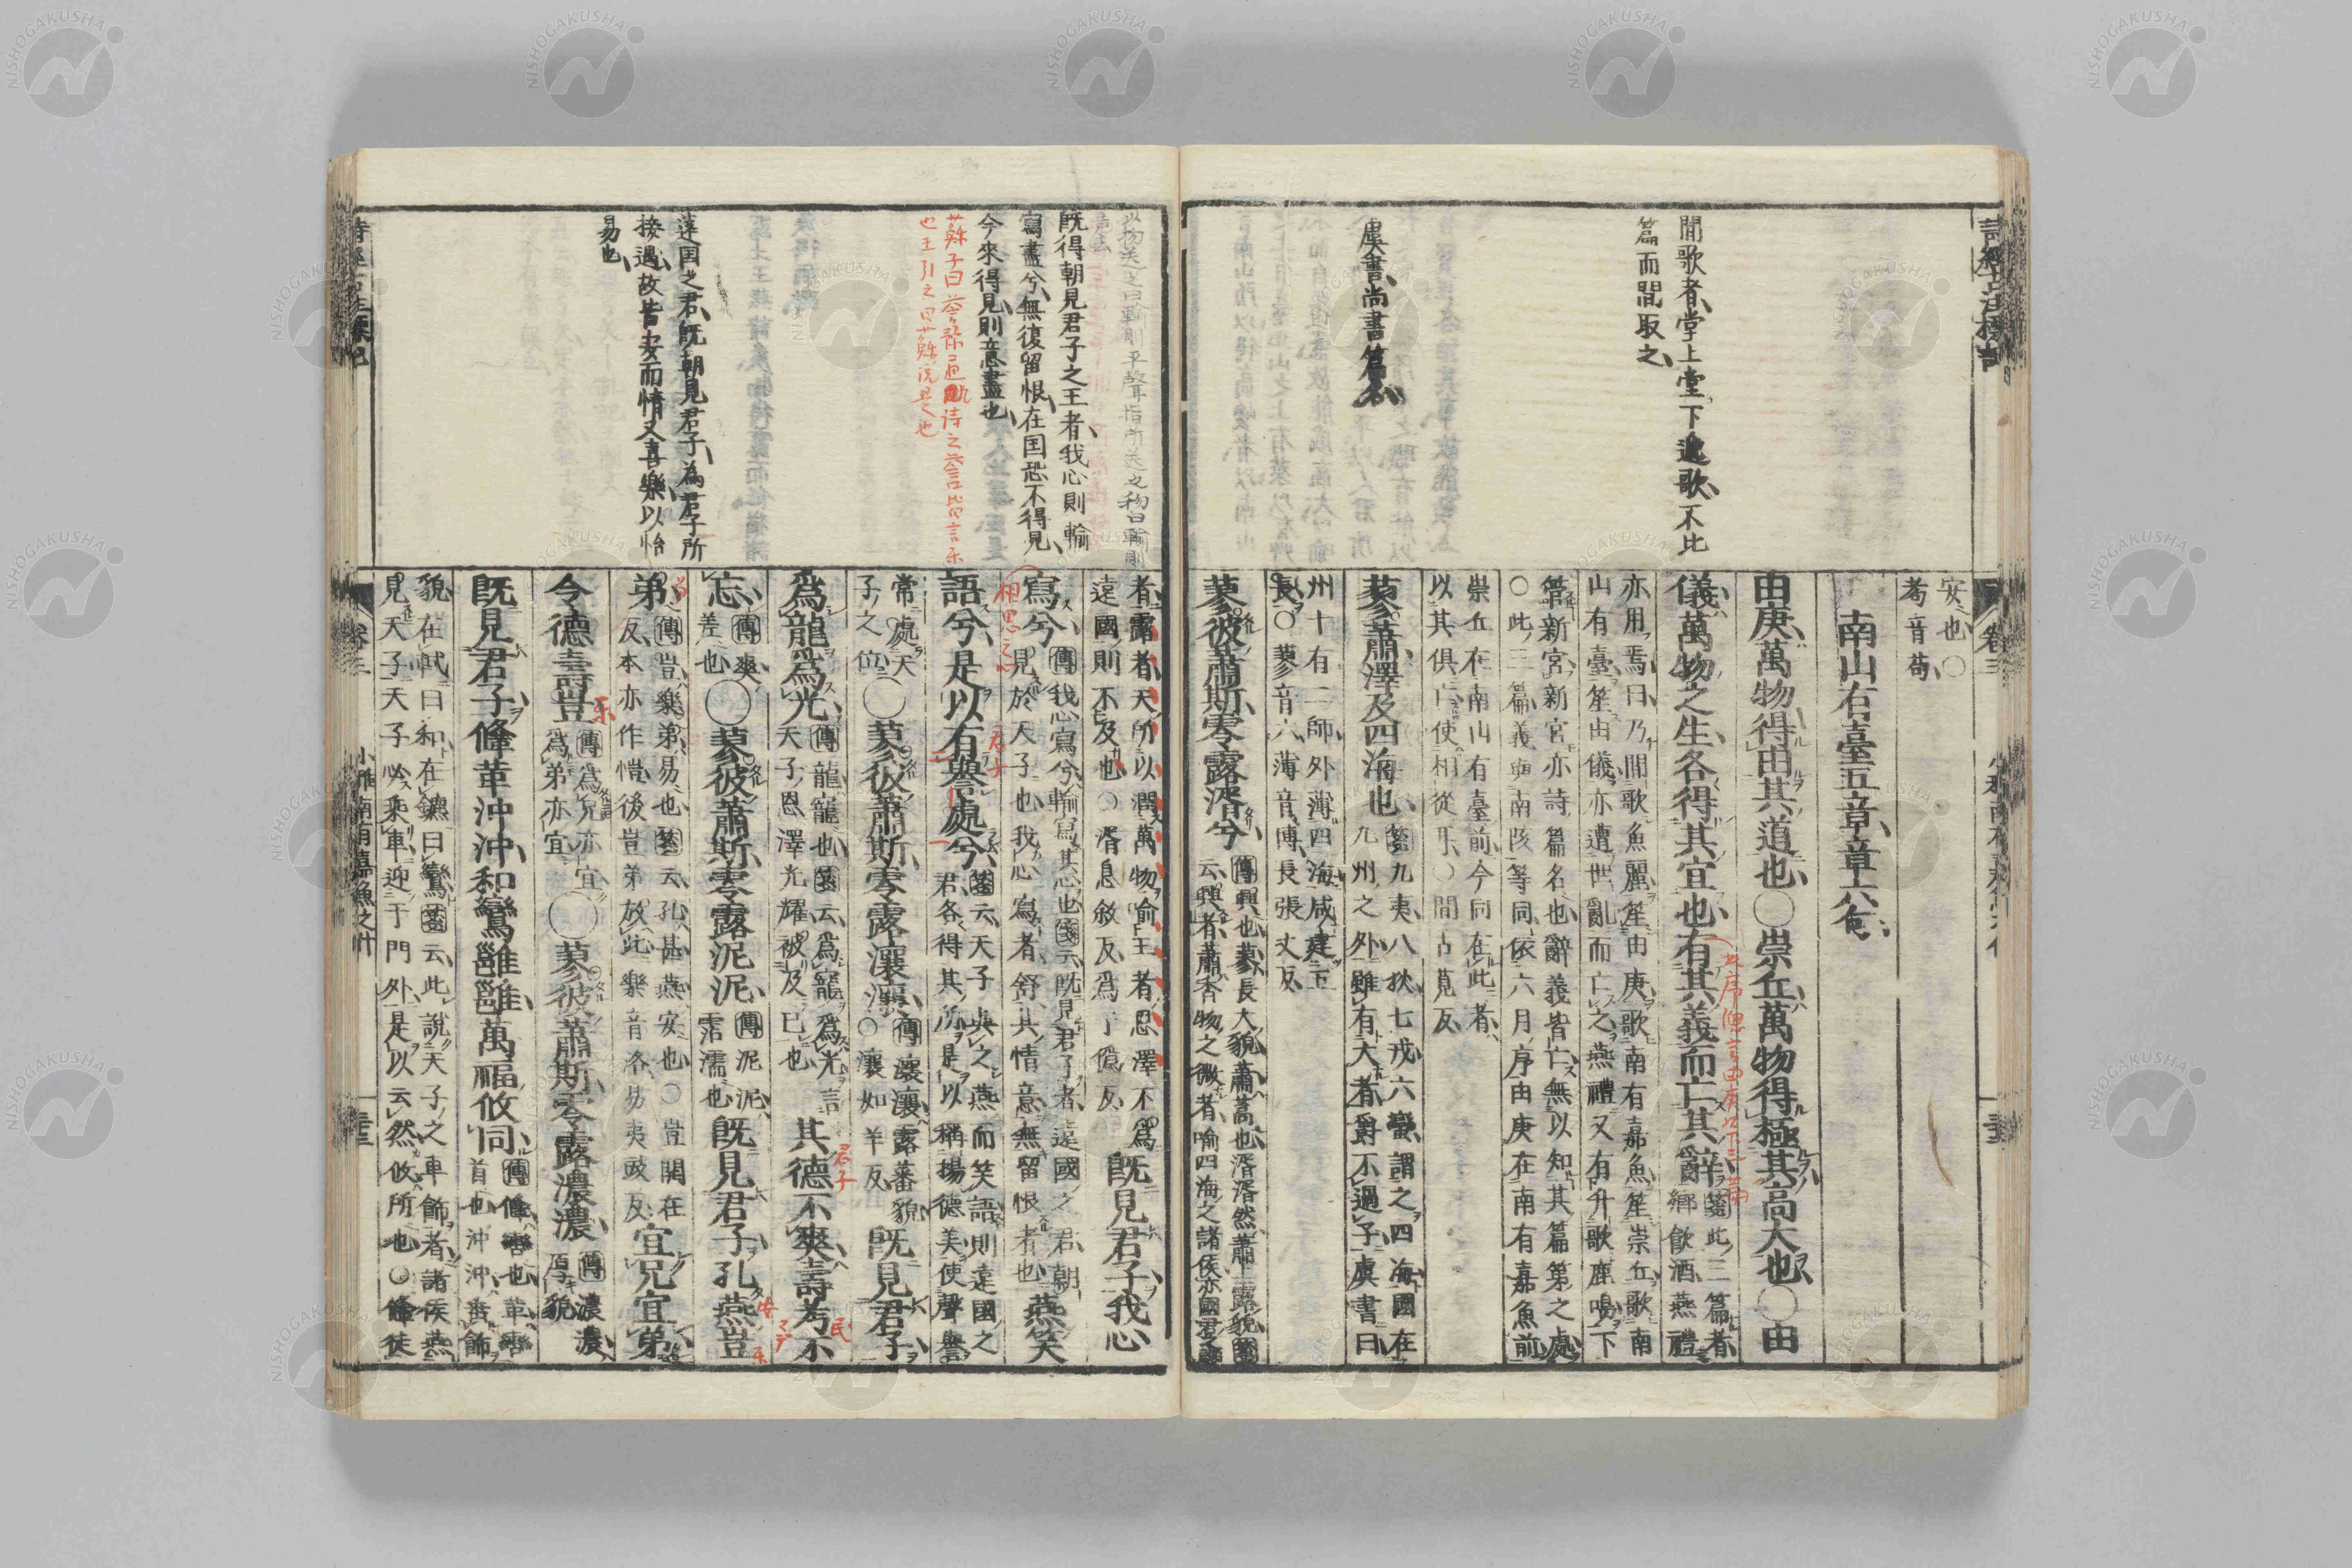 詩經古注標記
聞歌者堂上堂下遞歌不比
篇而間取之
虞書尚書篇名
卷三
安也〇
耇音苟
南山有臺五章章六句
由庚萬物得由其道也〇崇丘萬物得極其高大也〇由
儀萬物之生各得其宜也有其義而亡其辭
箋此三篇者
鄉飲酒燕禮
亦用焉曰乃間歌魚麗笙由庚歌南有嘉魚笙崇丘歌南
山有臺笙由儀亦遭世亂而亡之燕禮又有升歌鹿鳴下
管新宮新宮亦詩篇名也辭義皆亡無以知其篇第之處
〇此三篇義與南陔等同依六月序由庚在南有嘉魚前
崇丘在南山有臺前今同在此者
以其俱亡使相從耳〇間古莧反
蓼蕭澤及四海也
箋九夷八狄七戎六蠻謂之四海國在
九州之外雖有大者爵不過子虞書曰
州十有二師外薄四海咸建五
長〇蓼音六薄音博長張丈反
蓼彼蕭斯零露湑兮
傳興也蓼長大貌蕭蒿也湑湑然蕭上露貌箋
云興者蕭香物之微者喻四海之諸侯亦國君之賤
者露者天所以潤萬物喻王者恩澤不爲
遠國則不及也〇湑息敘反爲于僞反
既見君子我心
寫兮
傳我心寫兮輸寫其心也箋云既見君子者遠國之君朝
見於天子也我心寫者舒其情意無留恨者也
燕笑
語兮是以有譽處兮
箋云天子與之燕而笑語則遠國之
君各得其所是以稱揚德美使聲譽
常處天
子之位
〇蓼彼蕭斯零露瀼瀼
傳瀼瀼露蕃貌
〇瀼如羊反
既見君子
爲龍爲光
傳龍寵也箋云爲寵爲光言
天子恩澤光耀被及己也
其德不爽壽考不
忘
傳爽
差也
〇蓼彼蕭斯零露泥泥
傳泥泥
霑濡也
既見君子孔燕豈
弟
傳豈樂弟易也箋云孔甚燕安也〇豈開在
反本亦作愷後豈弟放此樂音洛易夷豉反
宜兄宜弟
令德壽豈
傳爲兄亦宜
爲弟亦宜
〇蓼彼蕭斯零露濃濃
傳濃濃
厚貌
既見君子鞗革沖沖和鸞雝雝萬福攸同
傳鞗轡也革轡
首也沖沖垂飾
貌在軾曰和在鑣曰鸞箋云此說天子之車飾者諸侯燕
見天子天子必乘車迎于門外是以云然攸所也〇鞗徒
既得朝見君子之王者我心則輸
寫盡兮無復留恨在国恐不得見
今來得見則意盡也
遠国之君既朝見君子為君子所
接遇故皆安而情又喜樂以怡
易也
卷三
小雅南有嘉魚之什